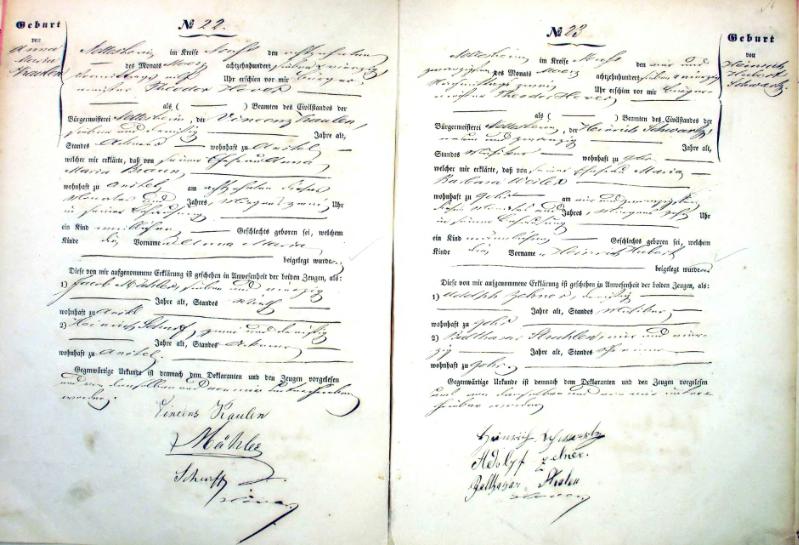 Geburt
von
Anna
Maria
Kaulen
№ 22.
Nettesheim im Kreise Neuss den achtzehnten
des Monats März achtzehnhundert sieben und vierzig
Uhr erschien vor mir Bürger
meister Theodor Hover
als ( ) Beamten des Civilstandes der
Bürgermeisterei Nettesheim, der Vincenz Kaulen,
sieben und dreißig Jahre alt,
Standes wohnhaft zu Anstel
welcher mir erklärte, daß von seiner Ehefrau Anna
Maria Braun
wohnhaft zu Anstel am achtzehnten dieses
Monats und Jahres Morgens zwei Uhr
in seiner Behausung
ein Kind weiblichen Geschlechts geboren sei, welchem
Kinde die Vorname Anna Maria
beigelegt wurden.
Diese von mir aufgenommene Erklärung ist geschehen in Anwesenheit der beiden Zeugen, als:
1) Jacob Mähler, sieben und vierzig
Jahre alt, Standes Wirth
wohnhaft zu Anstel
2) Heinrich Schurff, und dreißig
Jahre alt, Standes
wohnhaft zu Anstel.
Gegenwärtige Urkunde ist demnach dem Deklaranten und den Zeugen vorgelesen
und von denselben und von mir unterschrieben
worden.
Vincens Kaulen
Mähler
Schurff
Hover
№ 23
Geburt
von
Heinrich
Hubert
Schwartz
Nettesheim im Kreise Neuss den vier und
zwanzigsten des Monats März achtzehnhundert sieben und vierzig
Uhr erschien vor mir Bürger
meister Theodor Hover
als ( ) Beamten des Civilstandes der
Bürgermeisterei Nettesheim, der Heinrich Schwartz,
neun und zwanzig Jahre alt,
Standes wohnhaft zu Gohr
welcher mir erklärte, daß von seiner Ehefrau Maria
Barbara Weiler
wohnhaft zu Gohr am vier und zwanzigsten
dieses Monats und Jahres Morgens Uhr
in seiner Behausung
ein Kind männlichen Geschlechts geboren sei, welchem
Kinde die Vorname Heinrich Hubert
beigelegt wurden.
Diese von mir aufgenommene Erklärung ist geschehen in Anwesenheit der beiden Zeugen, als:
1) Adolph Zehner, dreißig
Jahre alt, Standes
wohnhaft zu Gohr
2) Balthasar vier und vier-
zig Jahre alt, Standes Schreiner
wohnhaft zu Gohr.
Gegenwärtige Urkunde ist demnach dem Deklaranten und den Zeugen vorgelesen
und von denselben und von mir unter-
schrieben worden
Heinrich Schwartz
Adolpf Zehner.
Balthasar
Hover